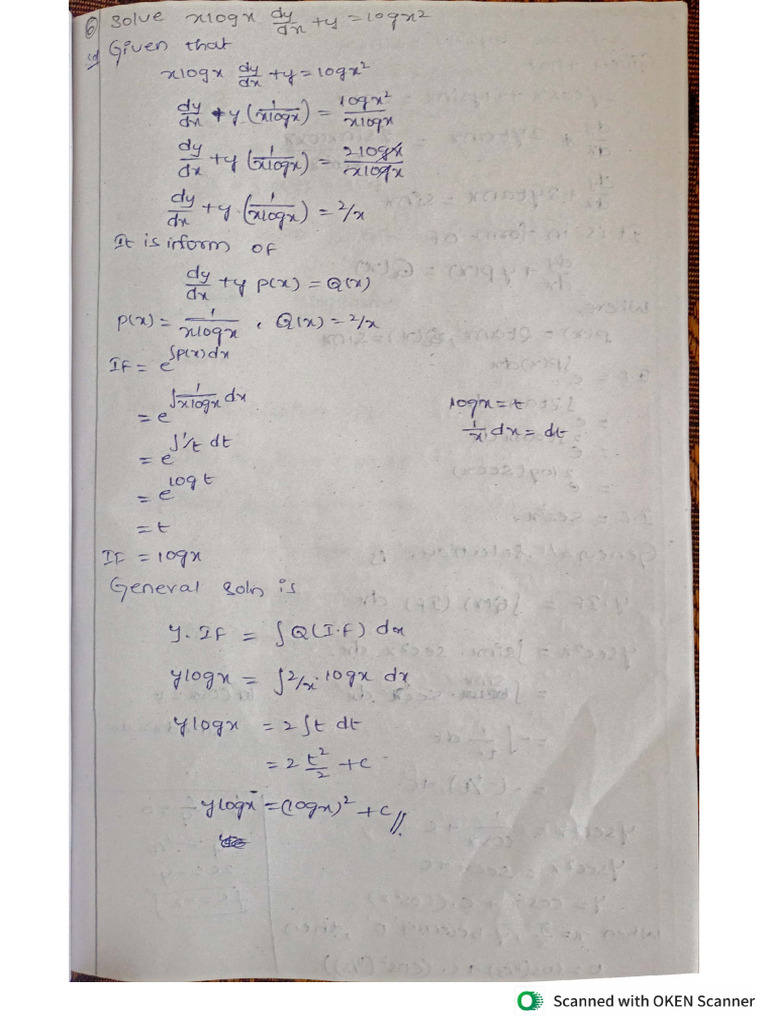 6) Solve xlogx dy/dx + y = logx²
Sol Given that
xlogx dy/dx + y = logx²
dy/dx + y (1/xlogx) = logx²/xlogx
dy/dx + y (1/xlogx) = 2logx/xlogx
dy/dx + y (1/xlogx) = 2/x
It is inform of
dy/dx + y p(x) = Q(x)
p(x) = 1/xlogx , Q(x) = 2/x
IF = e^∫p(x)dx
= e^∫1/xlogx dx
logx = t
= e^∫1/t dt
1/x dx = dt
= e^logt
= t
IF = logx
General soln is
y. IF = ∫Q(I.F) dx
ylogx = ∫2/x . logx dx
ylogx = 2∫t dt
= 2 t²/2 + c
ylogx = (logx)² + c //
Scanned with OKEN Scanner